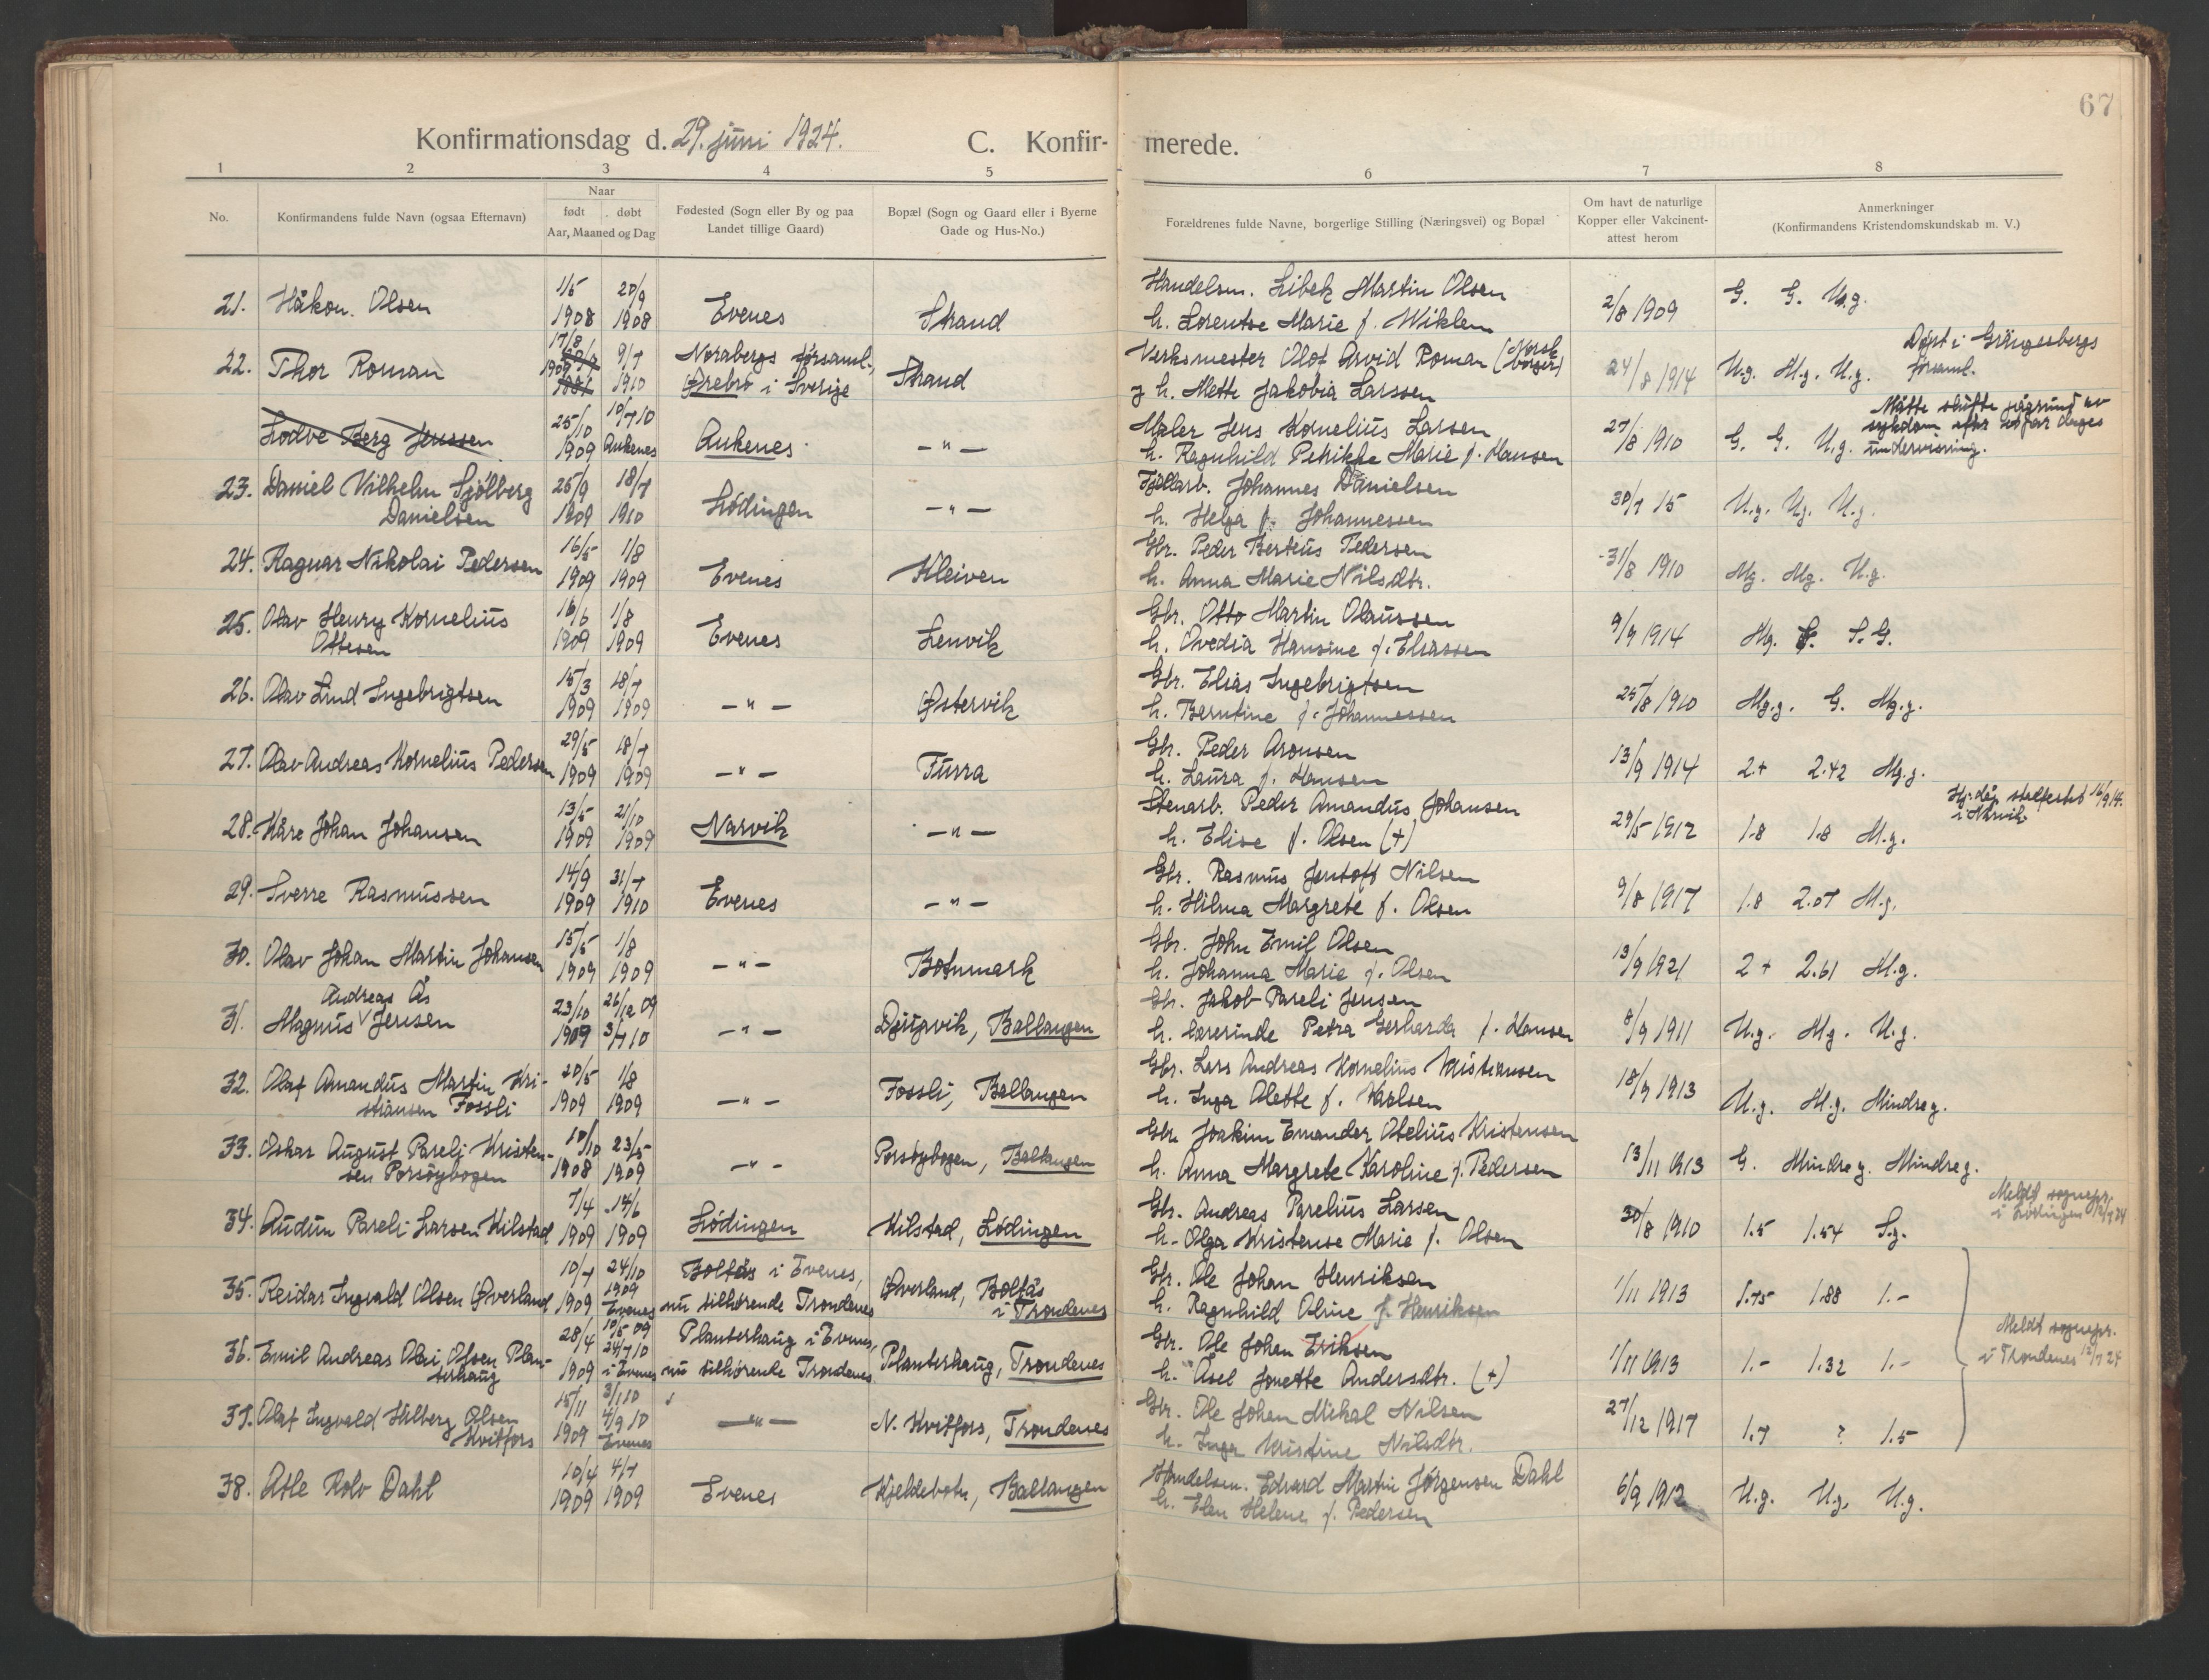 67
Konfirmationsdag d. 29. juni 1924. C. Konfirmerede.
1 2 3 4 5 6 7 8
No.
Konfirmandens fulde Navn (ogsaa Efternavn)
Naar
født døbt
Aar, Maaned og Dag
Fødested (Sogn eller By og paa
Landet tillige Gaard)
Bopæl (Sogn og Gaard eller i Byerne
Gade og Hus-No.)
Forældrenes fulde Navne, borgerlige Stilling (Næringsvei) og Bopæl
Om havt de naturlige
Kopper eller Vakcinent-
attest herom
Anmerkninger
(Konfirmandens Kristendomskundskab m. V.)
21. Håkon Olsen 1/5 1908 20/9 1908 Evenes Strand
Handelsm. Libek Martin Olsen
h. Lorentse Marie f. Wiklem 2/8 1909 G. G. Ug.
22. Thor Roman 17/8 1909 9/7 1910 Norabergs församl., Ørebro i Sverige Strand
Verksmester Olof Arvid Roman (Norsk borger)
g h. Mette Jakobia Larssen 24/8 1914 U.g. M.g. U.g. Døpt i Grängesbergs församl.
Lodve Berg Jenssen 25/10 1909 10/7 10 Ankenes Ankenes -"-
Maler Jens Kornelius Larsen
h. Ragnhild Petrikke Marie f. Hansen 27/8 1910 G. G. U.g. Måtte slutte på grund av sykdom efter et par dages undervisning.
23. Daniel Vilhelm Sjölberg Danielsen 25/9 1909 18/7 1910 Lödingen -"-
Fjellarb. Johannes Danielsen
h. Helga f. Johannessen 30/7 15 U.g. Ug. U.g.
24. Ragnar Nikolai Pedersen 16/5 1909 1/8 1909 Evenes Kleiven
Gbr. Peder Berteus Pedersen
h. Anna Marie Nilsdtr. 31/8 1910 Mg. Mg. U.g.
25. Olav Henry Kornelius Ottesen 16/6 1909 1/8 1909 Evenes Lenvik
Gbr. Otto Martin Olaussen
h. Ovedia Hansine f. Eliassen 9/9 1914 Mg. S. S.G.
26. Olav Lind Ingebrigtsen 15/3 1909 18/7 1909 -"- Østervik
Gbr. Elias Ingebrigtsen
h. Berntine f. Johannessen 25/8 1910 Mg.g. G. Mg.g.
27. Olav Andreas Kornelius Pedersen 29/5 1909 18/7 1909 -"- Furra
Gbr. Peder Aronsen
h. Laura f. Hansen 13/9 1914 2.+ 2.42 Mg.g.
28. Kåre Johan Johansen 13/5 1909 21/10 1909 Narvik -"-
Stenarb. Peder Amandus Johansen
h. Elise f. Olsen (+) 29/5 1912 1.8 1.8 M.g. Hj.døp stadfestet 16/9 14. i Narvik
29. Sverre Rasmussen 14/9 1909 31/7 1910 Evenes -"-
Gbr. Rasmus Jentoft Nilsen
h. Hilma Margrete f. Olsen 9/8 1917 1.8 2.07 M.g.
30. Olav Johan Martin Johansen 15/5 1909 1/8 1909 -"- Botnmark
Gbr. John Emil Olsen
h. Johanna Marie f. Olsen 13/9 1921 2+ 2.61 M.g.
31. Magnus Andreas Ås Jensen 23/10 1909 26/12 09 3/7 10 -"- Djupvik, Ballangen
Gbr. Jakob Pareli Jensen
h. lærerinde Petra Gerharda f. Hansen 8/9 1911 U.g. Mg. U.g.
32. Olaf Amandus Martin Kristiansen Fossli 20/5 1909 1/8 1909 -"- Fossli, Ballangen
Gbr. Lars Andreas Kornelius Kristiansen
h. Inga Alette f. Karlsen 18/9 1913 U.g. M.g. Mindre g.
33. Oskar August Pareli Kristensen Porsøybogen 10/10 1908 23/5 1909 -"- Porsøybogen, Ballangen
Gbr. Joakim Emander Otelius Kristensen
h. Anna Margrete Karoline f. Pedersen 13/11 1913 G. Mindre g. Mindre g.
34. Audun Pareli Larsen Kilstad 7/4 1909 14/6 1909 Lödingen Kilstad, Lödingen
Gbr. Andreas Parelius Larsen
h. Olga Kristense Marie f. Olsen 30/8 1910 1.5 1.54 S.g. Meldt sognepr. i Lödingen 12/7 24
35. Reidar Ingvald Olsen Øverland 10/7 1909 24/10 1909 Evenes Boltås i Evenes, nu tilhørende Trondenes Øverland, Boltås i Trondenes
Gbr. Ole Johan Henriksen
h. Ragnhild Oline f. Henriksen 1/11 1913 1.75 1.88 1.-
36. Emil Andreas Olai Olsen Planterhaug 28/4 1909 10/5 09 24/7 10 i Evenes Planterhaug i Evenes, nu tilhørende Trondenes Planterhaug, Trondenes
Gbr. Ole Johan Eriksen
h. Åsel Jonette Andersdtr. (+) 1/11 1913 1.- 1.32 1.- Meldt sognepr. i Trondenes 12/7 24
37. Olaf Ingvald Hilberg Olsen Kvitfors 15/11 1909 3/1 10 4/9 10 Evenes -"- N. Kvitfors, Trondenes
Gbr. Ole Johan Mikal Nilsen
h. Inga Kristine Nilsdtr. 27/12 1917 1.7 ? 1.5
38. Atle Rolv Dahl 10/4 1909 4/7 1909 Evenes Kjeldebotn, Ballangen
Handelsm. Edvard Martin Jørgensen Dahl
h. Elen Helene f. Pedersen 6/9 1912 U.g. Ug. U.g.